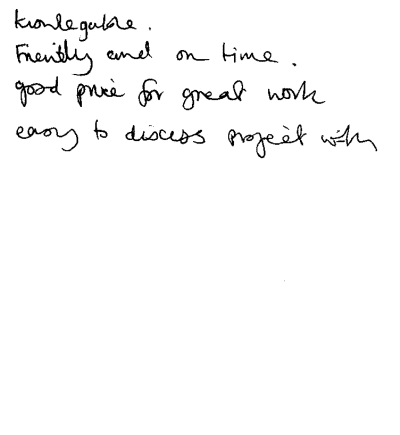 knowlegable.
Friently and on time.
good price for great work
easy to discess project with